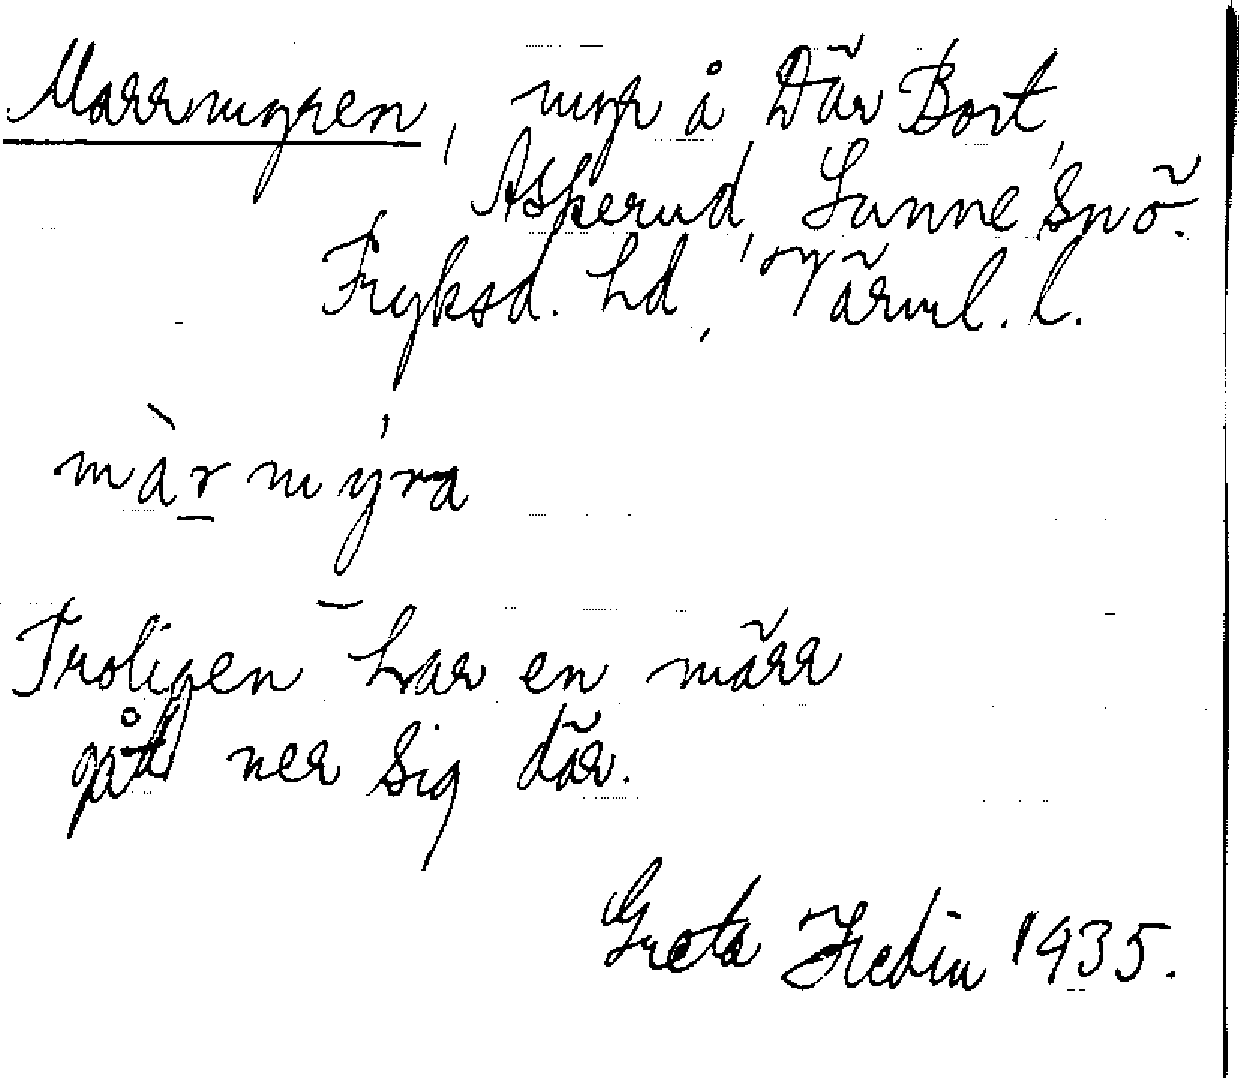 Marrmyren, myr å Där Bort,
Asperud, Sunne sn ö.
Fryksd. hd, Värml. l.
màr mýra
Troligen har en märr
gått ner sig där.
Greta Hedin 1935.